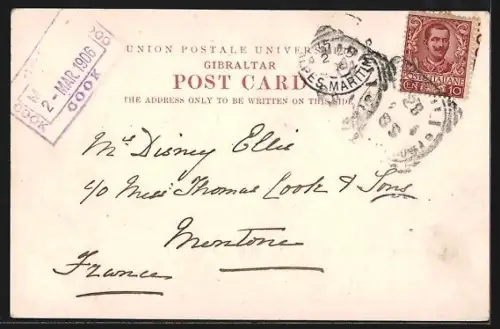 UNION POSTALE UNIVERSELLE
GIBRALTAR
POST CARD
THE ADDRESS ONLY TO BE WRITTEN ON THIS SIDE
COOK
2-MAR.1906
COOK
PES MARITIM
10
Mrs Disney Ellis
c/o Messrs Thomas Cook & Sons
Mentone
France